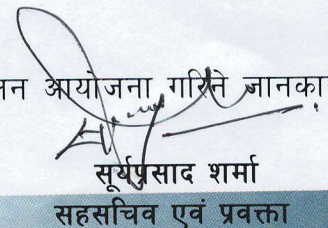 आयोजना गरिने
सूर्यप्रसाद शर्मा
सहसचिव एवं प्रवक्ता